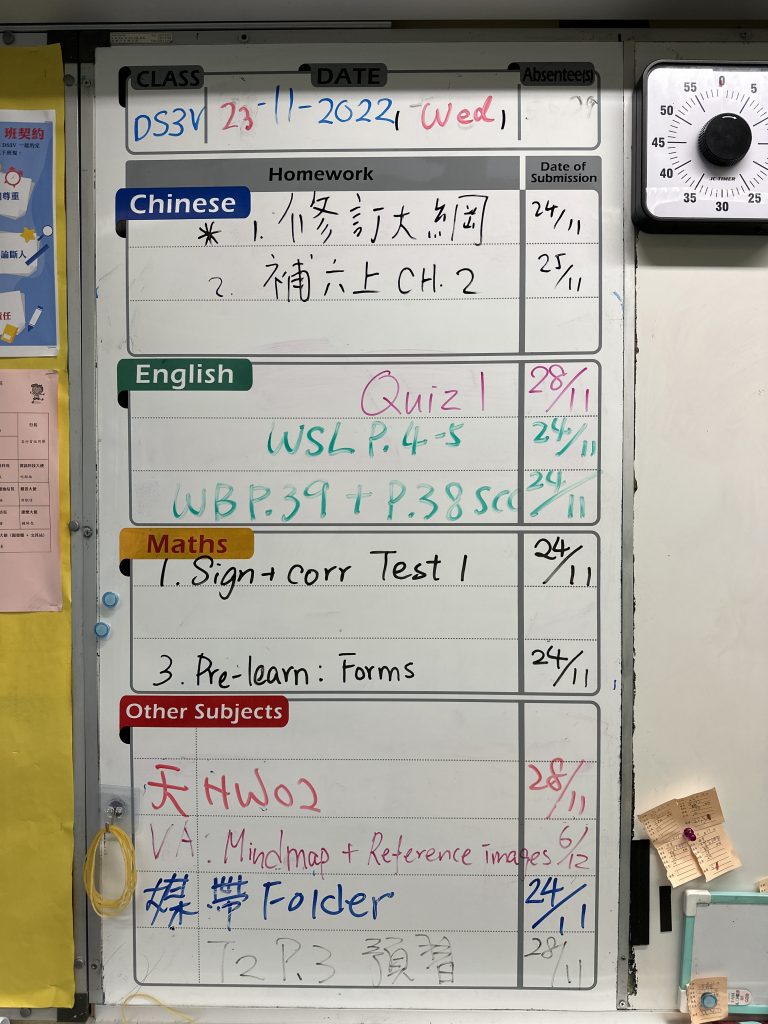 CLASS DATE Absentee(s)
DS3V 23-11-2022, Wed,
Homework Date of Submission
Chinese
* 1. 修訂大綱 24/11
2. 補六上 CH.2 25/11
English
Quiz 1 28/11
WSL P.4-5 24/11
WB P.39 + P.38 Scc 24/11
Maths
1. Sign + corr Test 1 24/11
3. Pre-learn: Forms 24/11
Other Subjects
天 HW02 28/11
VA: Mindmap + Reference images 6/12
媒 帶 Folder 24/11
T2 P.3 預習 28/11
班契約
尊重
論斷人
責任
55 0 5
50
45
40
35 30 25
JC-TIMER